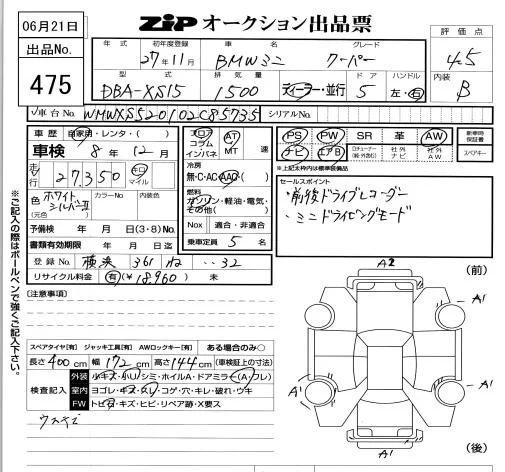 06月21日
ZIP オークション出品票
出品No.
475
年式 初年度登録 車名 グレード
27年11月 BMWミニ クーパー
型式 排気量 ドア ハンドル
DBA-XS15 1500 ディーラー・並行 5 左・右
評価点
4.5
内装
B
車台No. WMWXS520102C85735 シリアルNo.
車歴 自家用・レンタ・( )
車検 8年 12月
走行 27,350 キロ マイル
色 ホワイトシルバーII カラーNo 内装色
(元色)
予備検 年 月 日(3・8)No.
書類有効期限 年 月 日迄
登録No. 横浜 361 ‥32
リサイクル料金 有(¥18,960) 未
フロア コラム インパネ
AT MT 速
冷房
無・C・AC・AAC
燃料
ガソリン・軽油・電気・その他( )
Nox 適合・非適合
乗車定員 5 名
PS PW SR 革 AW
ナビ エアB 社外ナビ 社外AW
新車時保証書
スペアキー
※上記太枠内は標準装備品
セールスポイント
・前後ドライブレコーダー
・ミニドライビングモード
[注意事項]
スペアタイヤ[有] ジャッキ工具[有] AWロックキー[有] ある場合のみ〇
長さ 400cm 幅 172cm 高さ 144cm (車検証上の寸法)
検査記入
外装 小キズ・小U・シミ・ホイルA・ドアミラー(A/フレ)
室内 ヨゴレ・キズ・スレ・コゲ・穴・キレ・破れ・ウキ
FW トビ石・キズ・ヒビ・リペア跡・X要ス
ウスキズ
※ご記入の際はボールペンで強くご記入下さい。
A2
(前)
A1
A1
A1
A1
A1
(後)